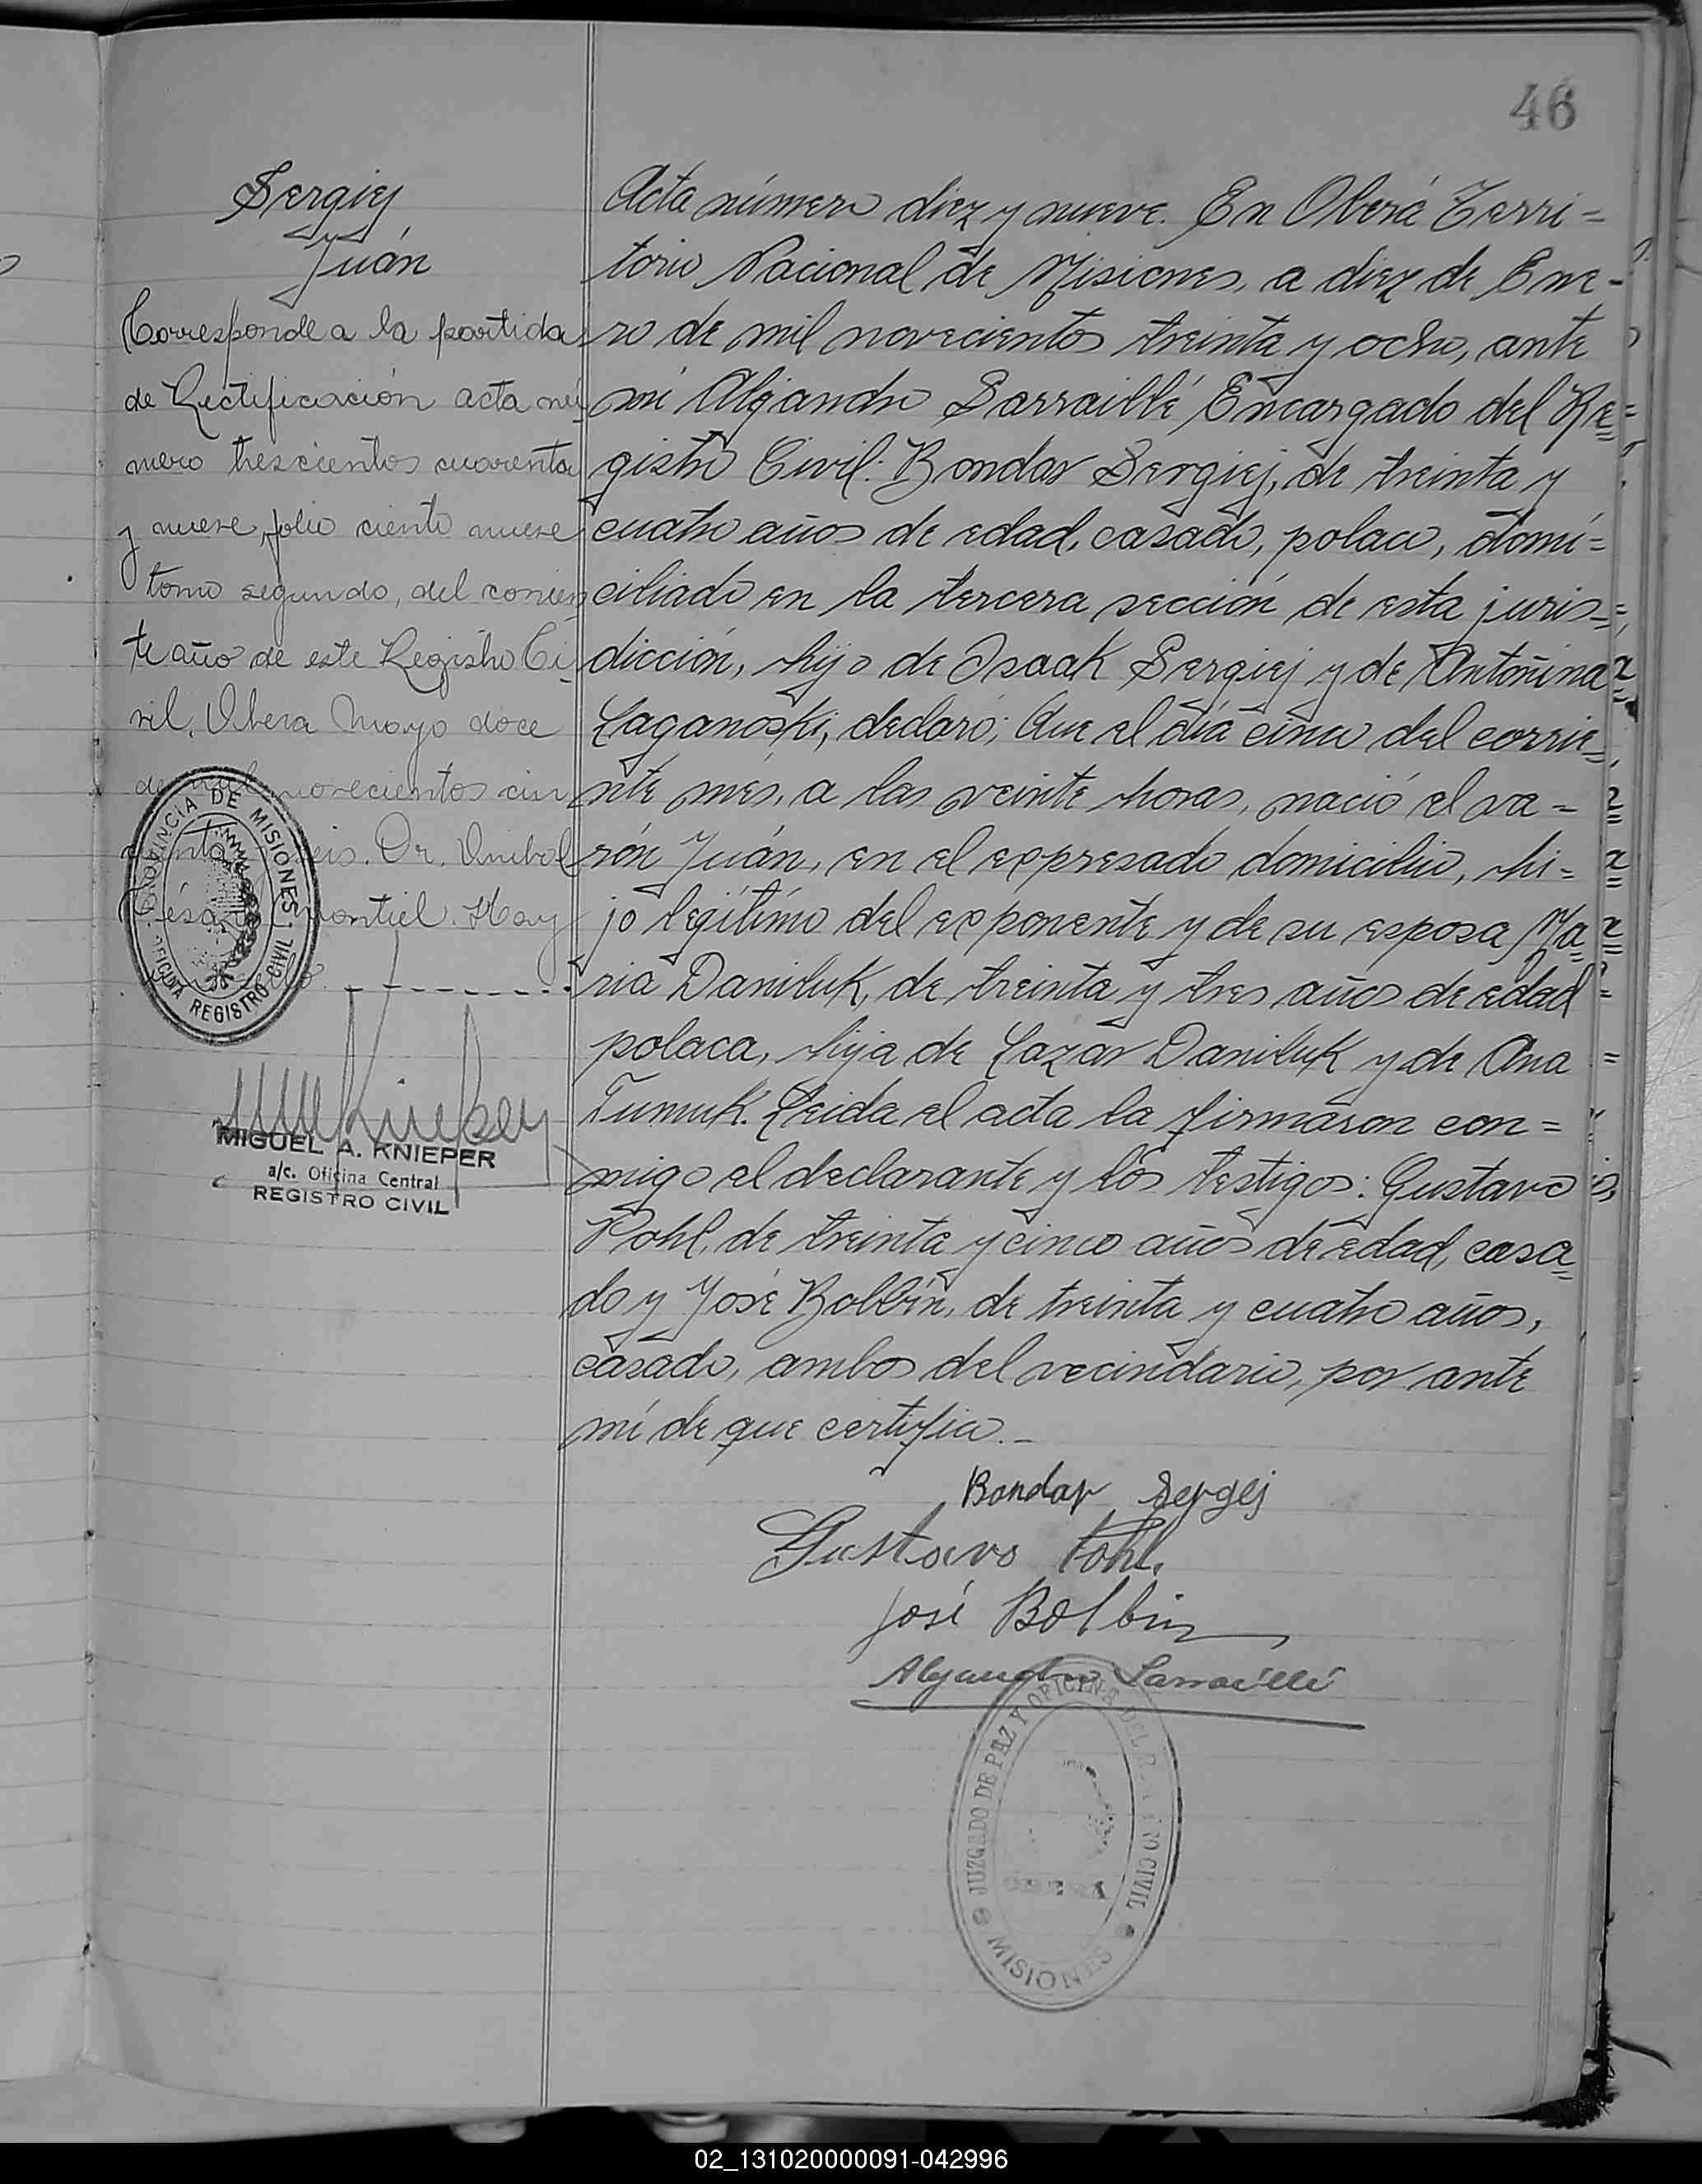 46
Sergiej
Juán
Corresponde a la partida
de Rectificación acta nú
mero trescientos cuarenta
y nueve, folio ciento nueve
tomo segundo, del corrien
te año de este Registro Ci
vil. Obera Mayo doce
de mil novecientos cin
Dr. Anibal
César Montiel. Hay
un sello.
PROVINCIA DE MISIONES
OFICINA REGISTRO CIVIL
MIGUEL A. KNIEPER
a/c. Oficina Central
REGISTRO CIVIL
Acta número diez y nueve. En Oberá Terri=
torio Nacional de Misiones, a diez de Ene-
ro de mil novecientos treinta y ocho, ante
mi Alejandro Sarraillé Encargado del Re=
gistro Civil: Bondar Sergiej, de treinta y
cuatro años de edad, casado, polaco, domi=
ciliado en la tercera sección de esta juris=
dicción, hijo de Isaak Sergiej y de Antoñina
Laganoski, declaró; Que el día cinco del corrie=
nte més, a las veinte horas, nació el va=
rón Juán, en el expresado domicilio, hi=
jo legítimo del exponente y de su esposa Ma=
ria Daniluk, de treinta y tres años de edad
polaca, hija de Lazar Daniluk y de Ana
Tumuk. Leida el acta la firmaron con=
migo el declarante y los testigos: Gustavo
Pohl, de treinta y cinco años de edad, casa=
do y José Bolbin, de treinta y cuatro años,
casado, ambos del vecindario, por ante
mí de que certifico.-
Bondar Sergej
Gustavo Pohl.
José Bolbin
Alejandro Sarraillé
JUZGADO DE PAZ Y OFICINA DEL REGISTRO CIVIL
OBERA
MISIONES
02_131020000091-042996